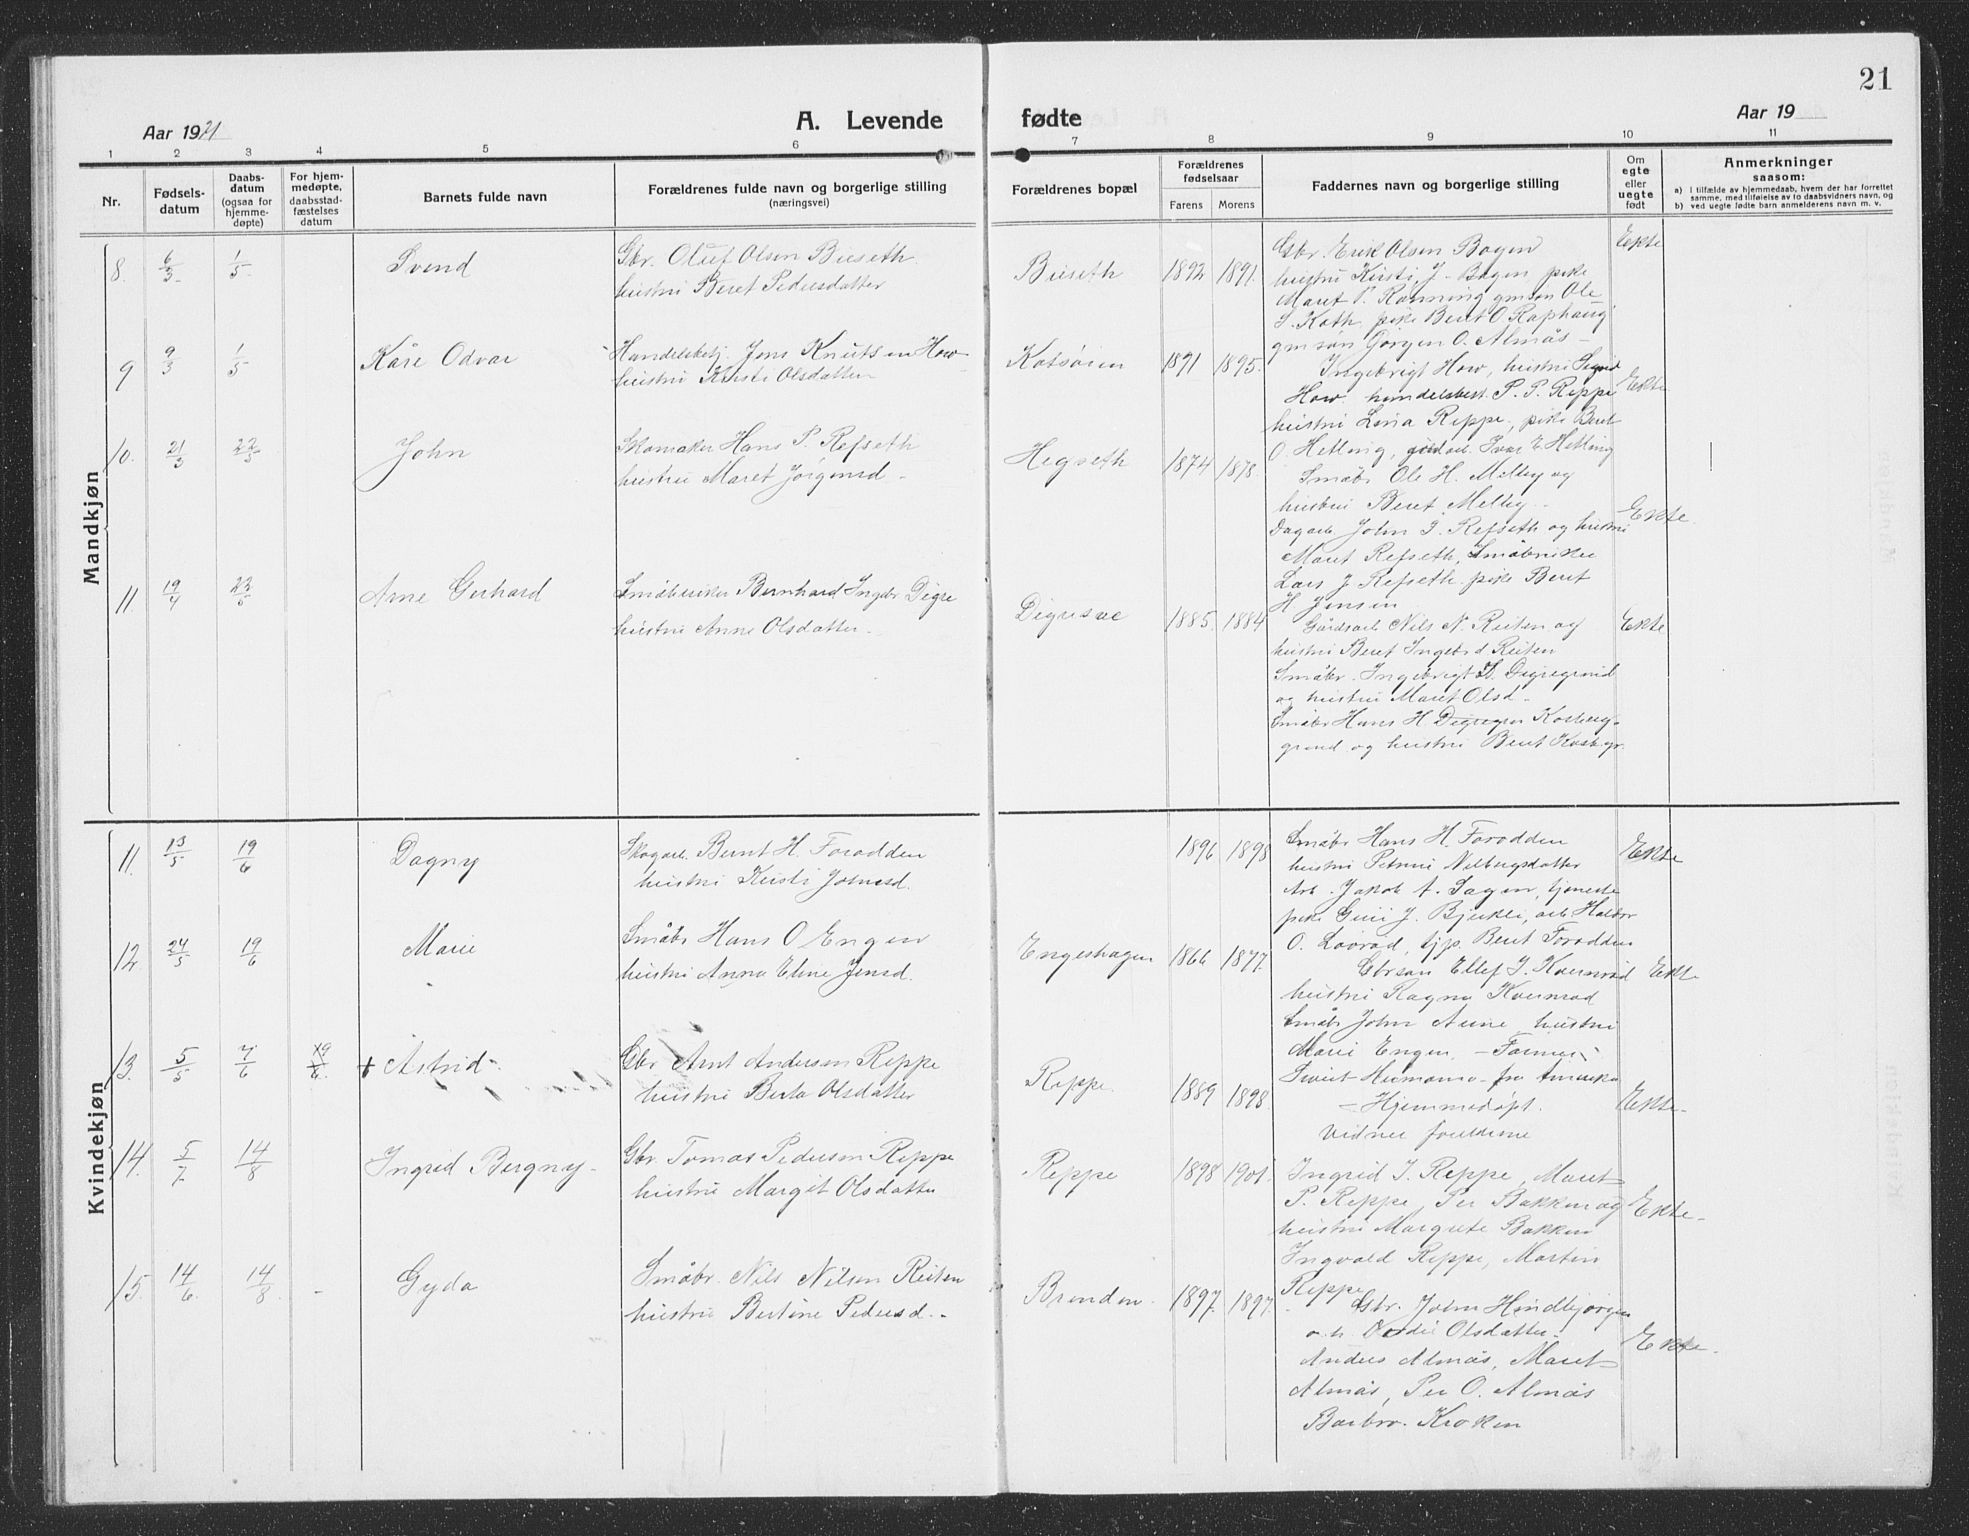 21
Aar 1921
A. Levende fødte
Aar 19
1 2 3 4 5 6 7 8 9 10 11
Nr.
Fødsels-
datum
Daabs-
datum
(ogsaa for
hjemme-
døpte)
For hjem-
medøpte,
daabsstad-
fæstelses
datum
Barnets fulde navn
Forældrenes fulde navn og borgerlige stilling
(næringsvei)
Forældrenes bopæl
Forældrenes
fødselsaar
Farens Morens
Faddernes navn og borgerlige stilling
Om
egte
eller
uegte
født
Anmerkninger
saasom:
a) I tilfælde av hjemmedaab, hvem der har forrettet
samme, med tilføielse av to daabsvidners navn, og
b) ved uegte fødte barn anmelderens navn m. v.
Mandkjøn
8. 6/3 1/5 Svend
Gbr. Oluf Olsen Buseth
hustru Beret Pedersdatter
Buseth 1892 1891.
Gbr. Erik Olsen Bogen
hustru Kirsti J. Bogen pike
Maret P. Rønning gmsøn Ole
J. Koth pike Beret O Raphaug
gmsøn Gørgen O. Almås -
Ekte
9 9/3 1/5 Kåre Odvar
Handelsbetj. Jens Knutsen How
hustru Kirsti Olsdatter
Kotsøien 1891 1895.
Ingebrigt How, hustru Sigrid
How. handelsbest. P. P. Reppe
hustru Lina Reppe, pike Beret
O. Hetting, Ivar E Hetting
Ekte
10. 21/3 22/5 John
Skomaker Hans P. Refseth
hustru Maret Jørgensd -
Hegseth 1874 1878.
Småbr Ole H. Melby og
hustru Beret Melby -
Dagarb John J. Refseth og hustru
Maret Refseth, Småbruker
Lars J Refseth. pike Beret
H Jensen
Ekte
11. 19/4 22/5 Arne Gerhard
Småbruker Bernhard Ingebr Digre
hustru Anne Olsdatter -
Digresve 1885. 1884
Gårdsarb Nils N. Reiten og
hustru Beret Ingebr d Reiten
Småbr. Ingebrigt H. Digregrind
og hustru Maret Olsd -
Småbr Hans H Digregrn Kosberg-
grend og hustru Beret Kosbgr.
Ekte
Kvindekjøn
11. 13/5 19/6 Dagny
Skogarb. Bernt H. Forodden
hustru Kirsti Johnsd.
1896 1898
Småbr Hans H. Forodden
hustru Petrine Nelbergsdatter
Arb. Jakob A. Sagen, tjeneste
pike Guri J. Bjerkli, arb Halvor
O. Lovrød, tjp. Beret Forodden
Ekte
12. 24/5 19/6 Marie
Småbr Hans O Engen
hustru Anna Eline Jensd.
Engeshagen 1866 1877.
Gbrsøn Ellef J. Kvernrød
hustru Ragna Kvernrød
Småbr John Aune hustru
Marie Engen, - Farmer
Sivert Hermanns - fra Amerika
Ekte
13. 5/5 7/6 19/6. + Astrid -
Gbr Arnt Andersen Reppe
hustru Berta Olsdatter
Reppe. 1889 1898.
- Hjemmedøpt.
Vidner foreldrene
Ekte -
14. 5/7 14/8 Ingrid Bergny -
Gbr. Tomas Pedersen Reppe
hustru Marget Olsdatter
Reppe 1898 1901.
Ingrid J. Reppe, Maret
P. Reppe, Per Bakken og
hustru Margrete Bakken
Ingvald Reppe, Martin
Reppe
Ekte -
15. 14/6. 14/8. - Gyda
Småbr. Nils Nilsen Reiten
hustru Bertine Pedersd. -
Brenden. 1897. 1897.
Gbr. John Hindbjørgen
o. h. Olsdatter -
Anders Almås, Maret
Almås, Per O. Almås
Barbro. Kroken
Ekte.